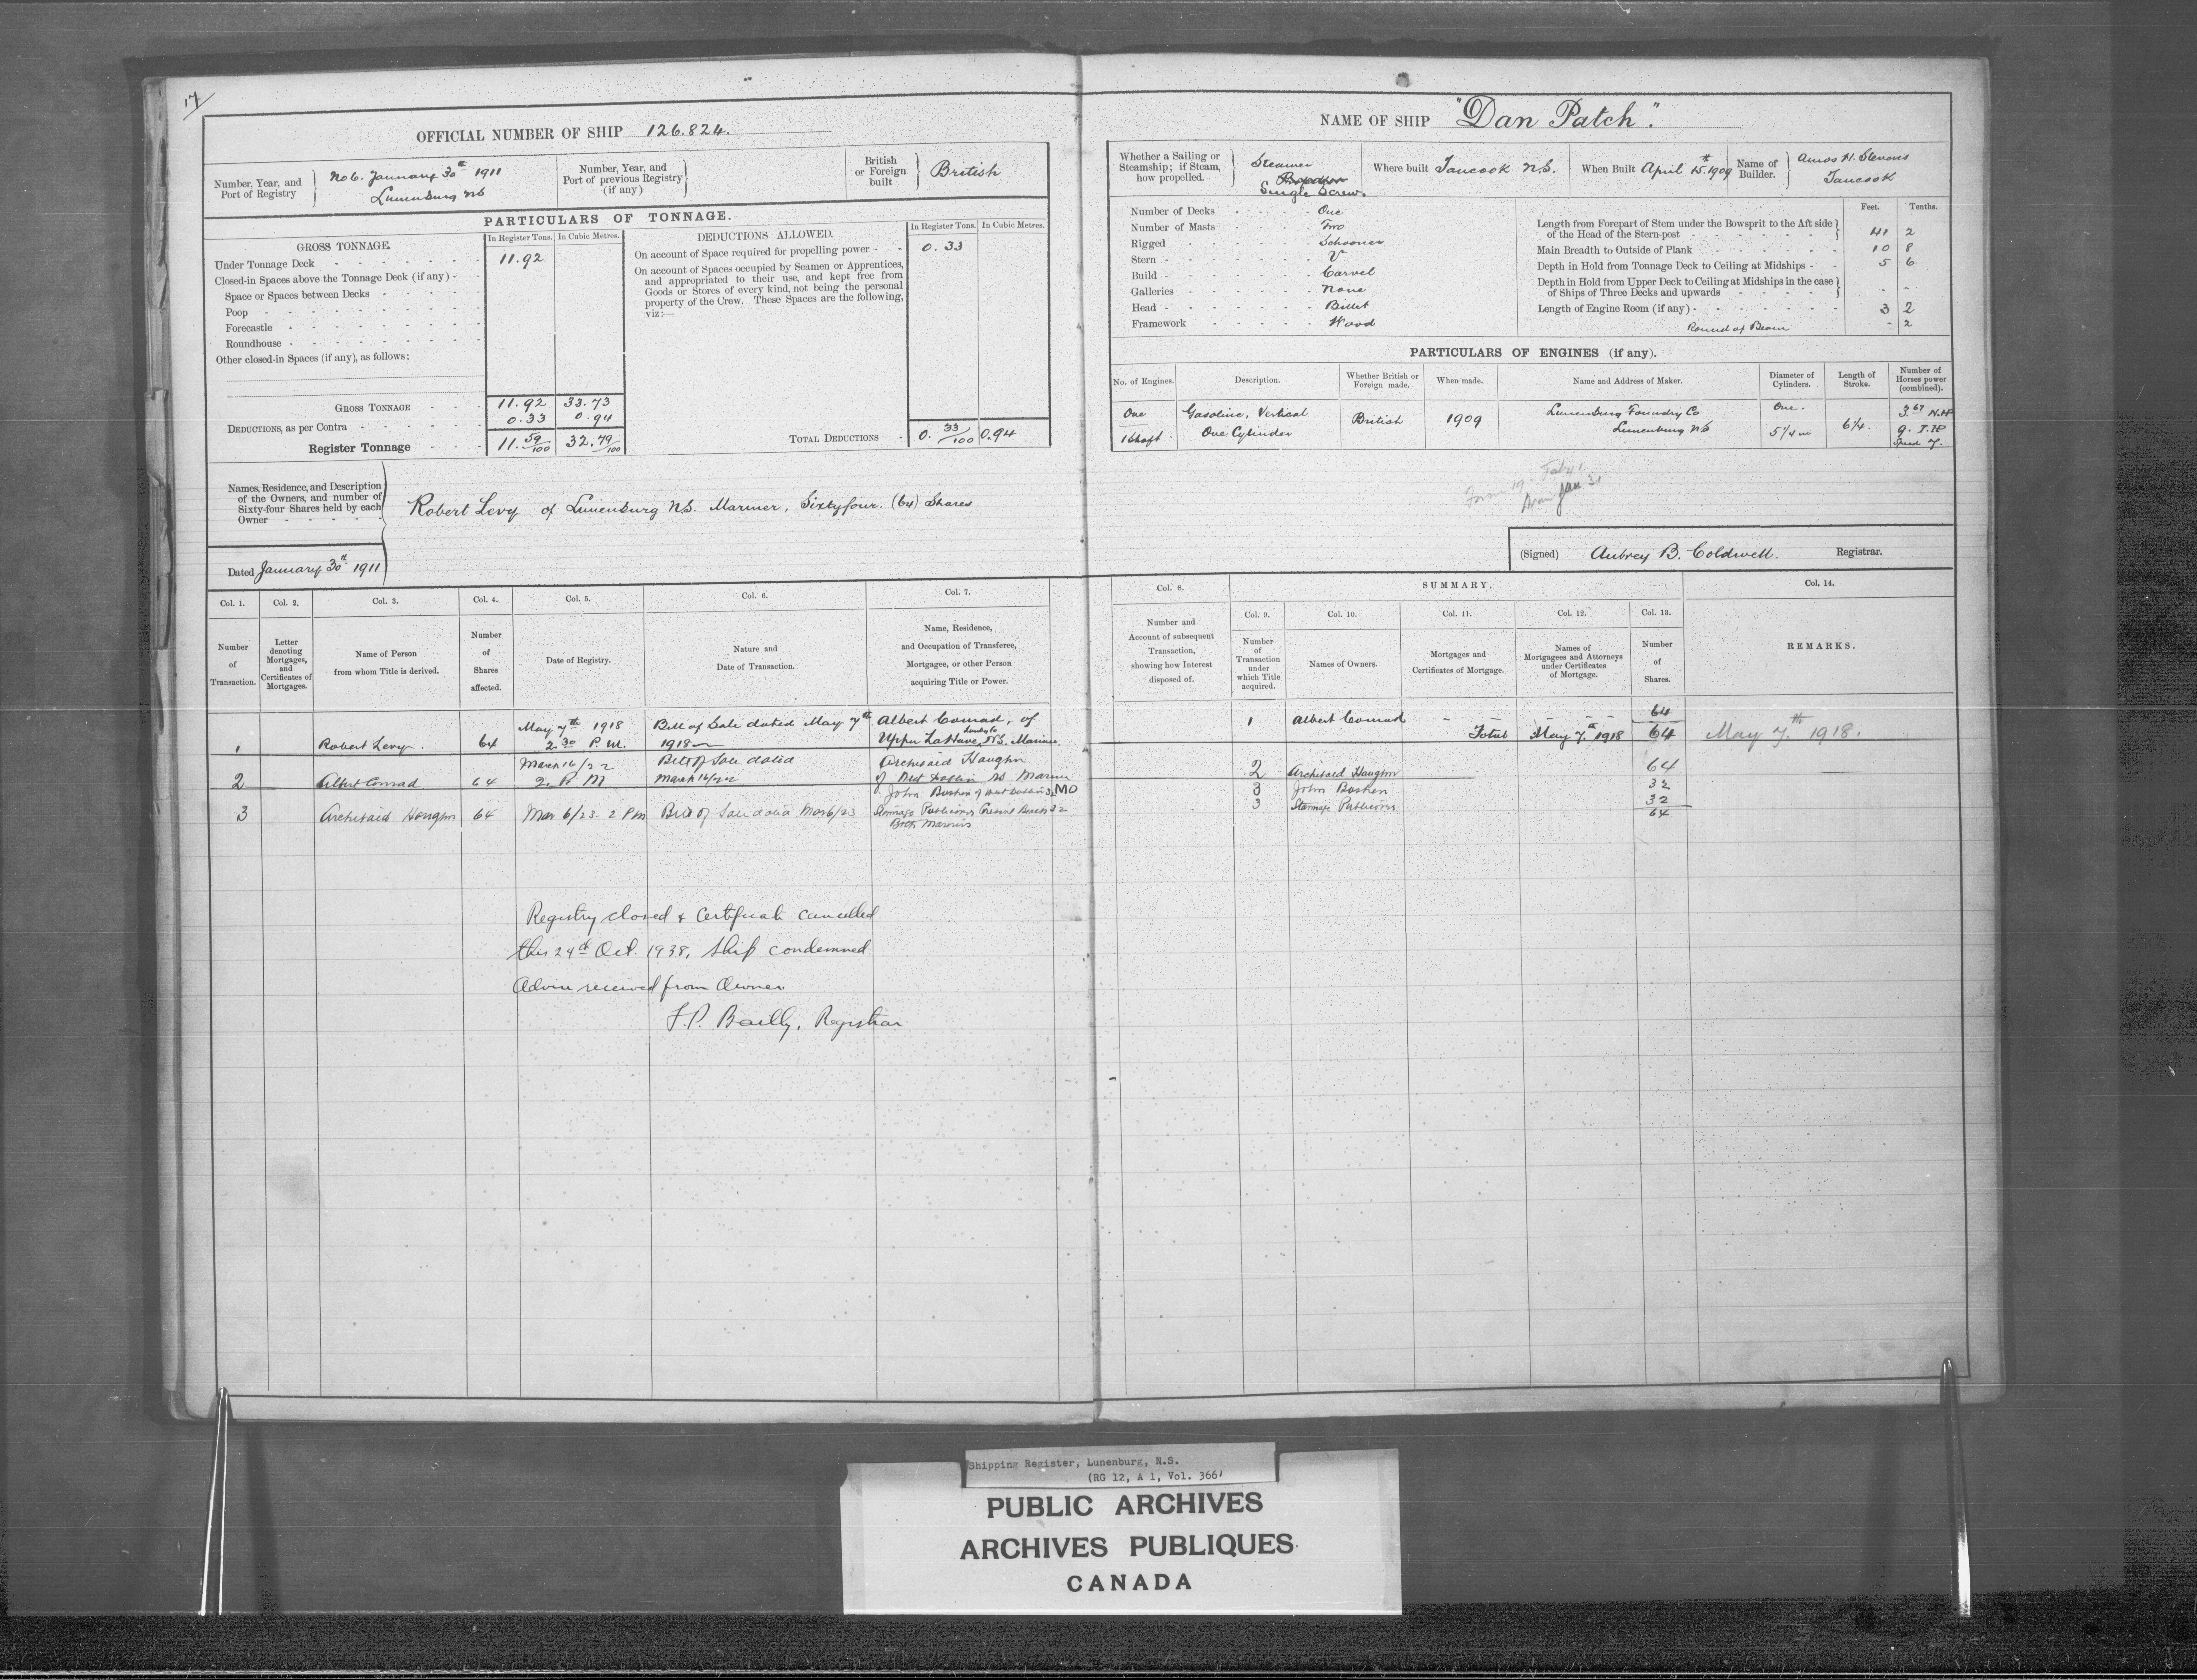 17
OFFICIAL NUMBER OF SHIP 126.824.
Number, Year, and Port of Registry
No 6. January 30th 1911
Lunenburg NS
Number, Year, and Port of previous Registry (if any)
British or Foreign built
British
PARTICULARS OF TONNAGE.
GROSS TONNAGE.
In Register Tons. In Cubic Metres.
Under Tonnage Deck 11.92
Closed-in Spaces above the Tonnage Deck (if any)
Space or Spaces between Decks
Poop
Forecastle
Roundhouse
Other closed-in Spaces (if any), as follows:
GROSS TONNAGE 11.92 33.73
DEDUCTIONS, as per Contra 0.33 0.94
Register Tonnage 11.59/100 32.79/100
DEDUCTIONS ALLOWED.
In Register Tons. In Cubic Metres.
On account of Space required for propelling power 0.33
On account of Spaces occupied by Seamen or Apprentices,
and appropriated to their use, and kept free from
Goods or Stores of every kind, not being the personal
property of the Crew. These Spaces are the following,
viz:—
TOTAL DEDUCTIONS 0.33/100 0.94
Names, Residence, and Description
of the Owners, and number of
Sixty-four Shares held by each
Owner
Robert Levy of Lunenburg NS. Mariner, Sixtyfour. (64) Shares
Dated January 30th 1911
NAME OF SHIP "Dan Patch".
Whether a Sailing or Steamship; if Steam, how propelled.
Steamer
Propeller
Single Screw.
Where built Tancook N.S.
When Built April 15th 1909
Name of Builder.
Amos H. Stevens
Tancook
Number of Decks One
Number of Masts Two
Rigged Schooner
Stern V
Build Carvel
Galleries None
Head Billet
Framework Wood
Feet. Tenths.
Length from Forepart of Stem under the Bowsprit to the Aft side
of the Head of the Stern-post 41 2
Main Breadth to Outside of Plank 10 8
Depth in Hold from Tonnage Deck to Ceiling at Midships 5 6
Depth in Hold from Upper Deck to Ceiling at Midships in the case
of Ships of Three Decks and upwards - -
Length of Engine Room (if any) 3 2
Round of Beam - 2
PARTICULARS OF ENGINES (if any).
No. of Engines.
Description.
Whether British or Foreign made.
When made.
Name and Address of Maker.
Diameter of Cylinders.
Length of Stroke.
Number of Horses power (combined).
One
1 Shaft
Gasoline, Vertical
One Cylinder
British
1909
Lunenburg Foundry Co
Lunenburg NS
One.
5 1/4 in
6 1/4.
3.67 N.HP
9. I.HP
Speed 7.
Form 19
Jan 31
(Signed) Aubrey B. Coldwell. Registrar.
Col. 1. Col. 2. Col. 3. Col. 4. Col. 5. Col. 6. Col. 7.
Number of Transaction.
Letter denoting Mortgages, and Certificates of Mortgages.
Name of Person from whom Title is derived.
Number of Shares affected.
Date of Registry.
Nature and Date of Transaction.
Name, Residence, and Occupation of Transferee, Mortgagee, or other Person acquiring Title or Power.
Col. 8.
SUMMARY.
Col. 14.
Col. 9. Col. 10. Col. 11. Col. 12. Col. 13.
Number and Account of subsequent Transaction, showing how Interest disposed of.
Number of Transaction under which Title acquired.
Names of Owners.
Mortgages and Certificates of Mortgage.
Names of Mortgagees and Attorneys under Certificates of Mortgage.
Number of Shares.
REMARKS.
1 Robert Levy. 64
May 7th 1918
2.30 P.M.
Bill of Sale dated May 7th
1918
Albert Conrad, of
Upper LaHave, N.S. Mariner
2 Albert Conrad 64
March 16/22
2. P M
Bill of Sale dated
March 16/22
Archibald Haughn
of West Dublin NS Mariner
3 Archibald Haughn 64 Mar 6/23 2 PM Bill of Sale dated Mar 6/23
John Bushen of West Dublin 32 MO
32
Both Mariners
1 Albert Conrad - - - - 64
Total May 7th 1918 64 May 7th 1918.
2 Archibald Haughn 64
3 John Bushen 32
3 32
64
Registry closed & Certificate cancelled
this 24th Oct. 1938. Ship condemned
Advice received from Owner
F.P. Bailly, Registrar
Shipping Register, Lunenburg, N.S.
(RG 12, A 1, Vol. 366)
PUBLIC ARCHIVES
ARCHIVES PUBLIQUES
CANADA